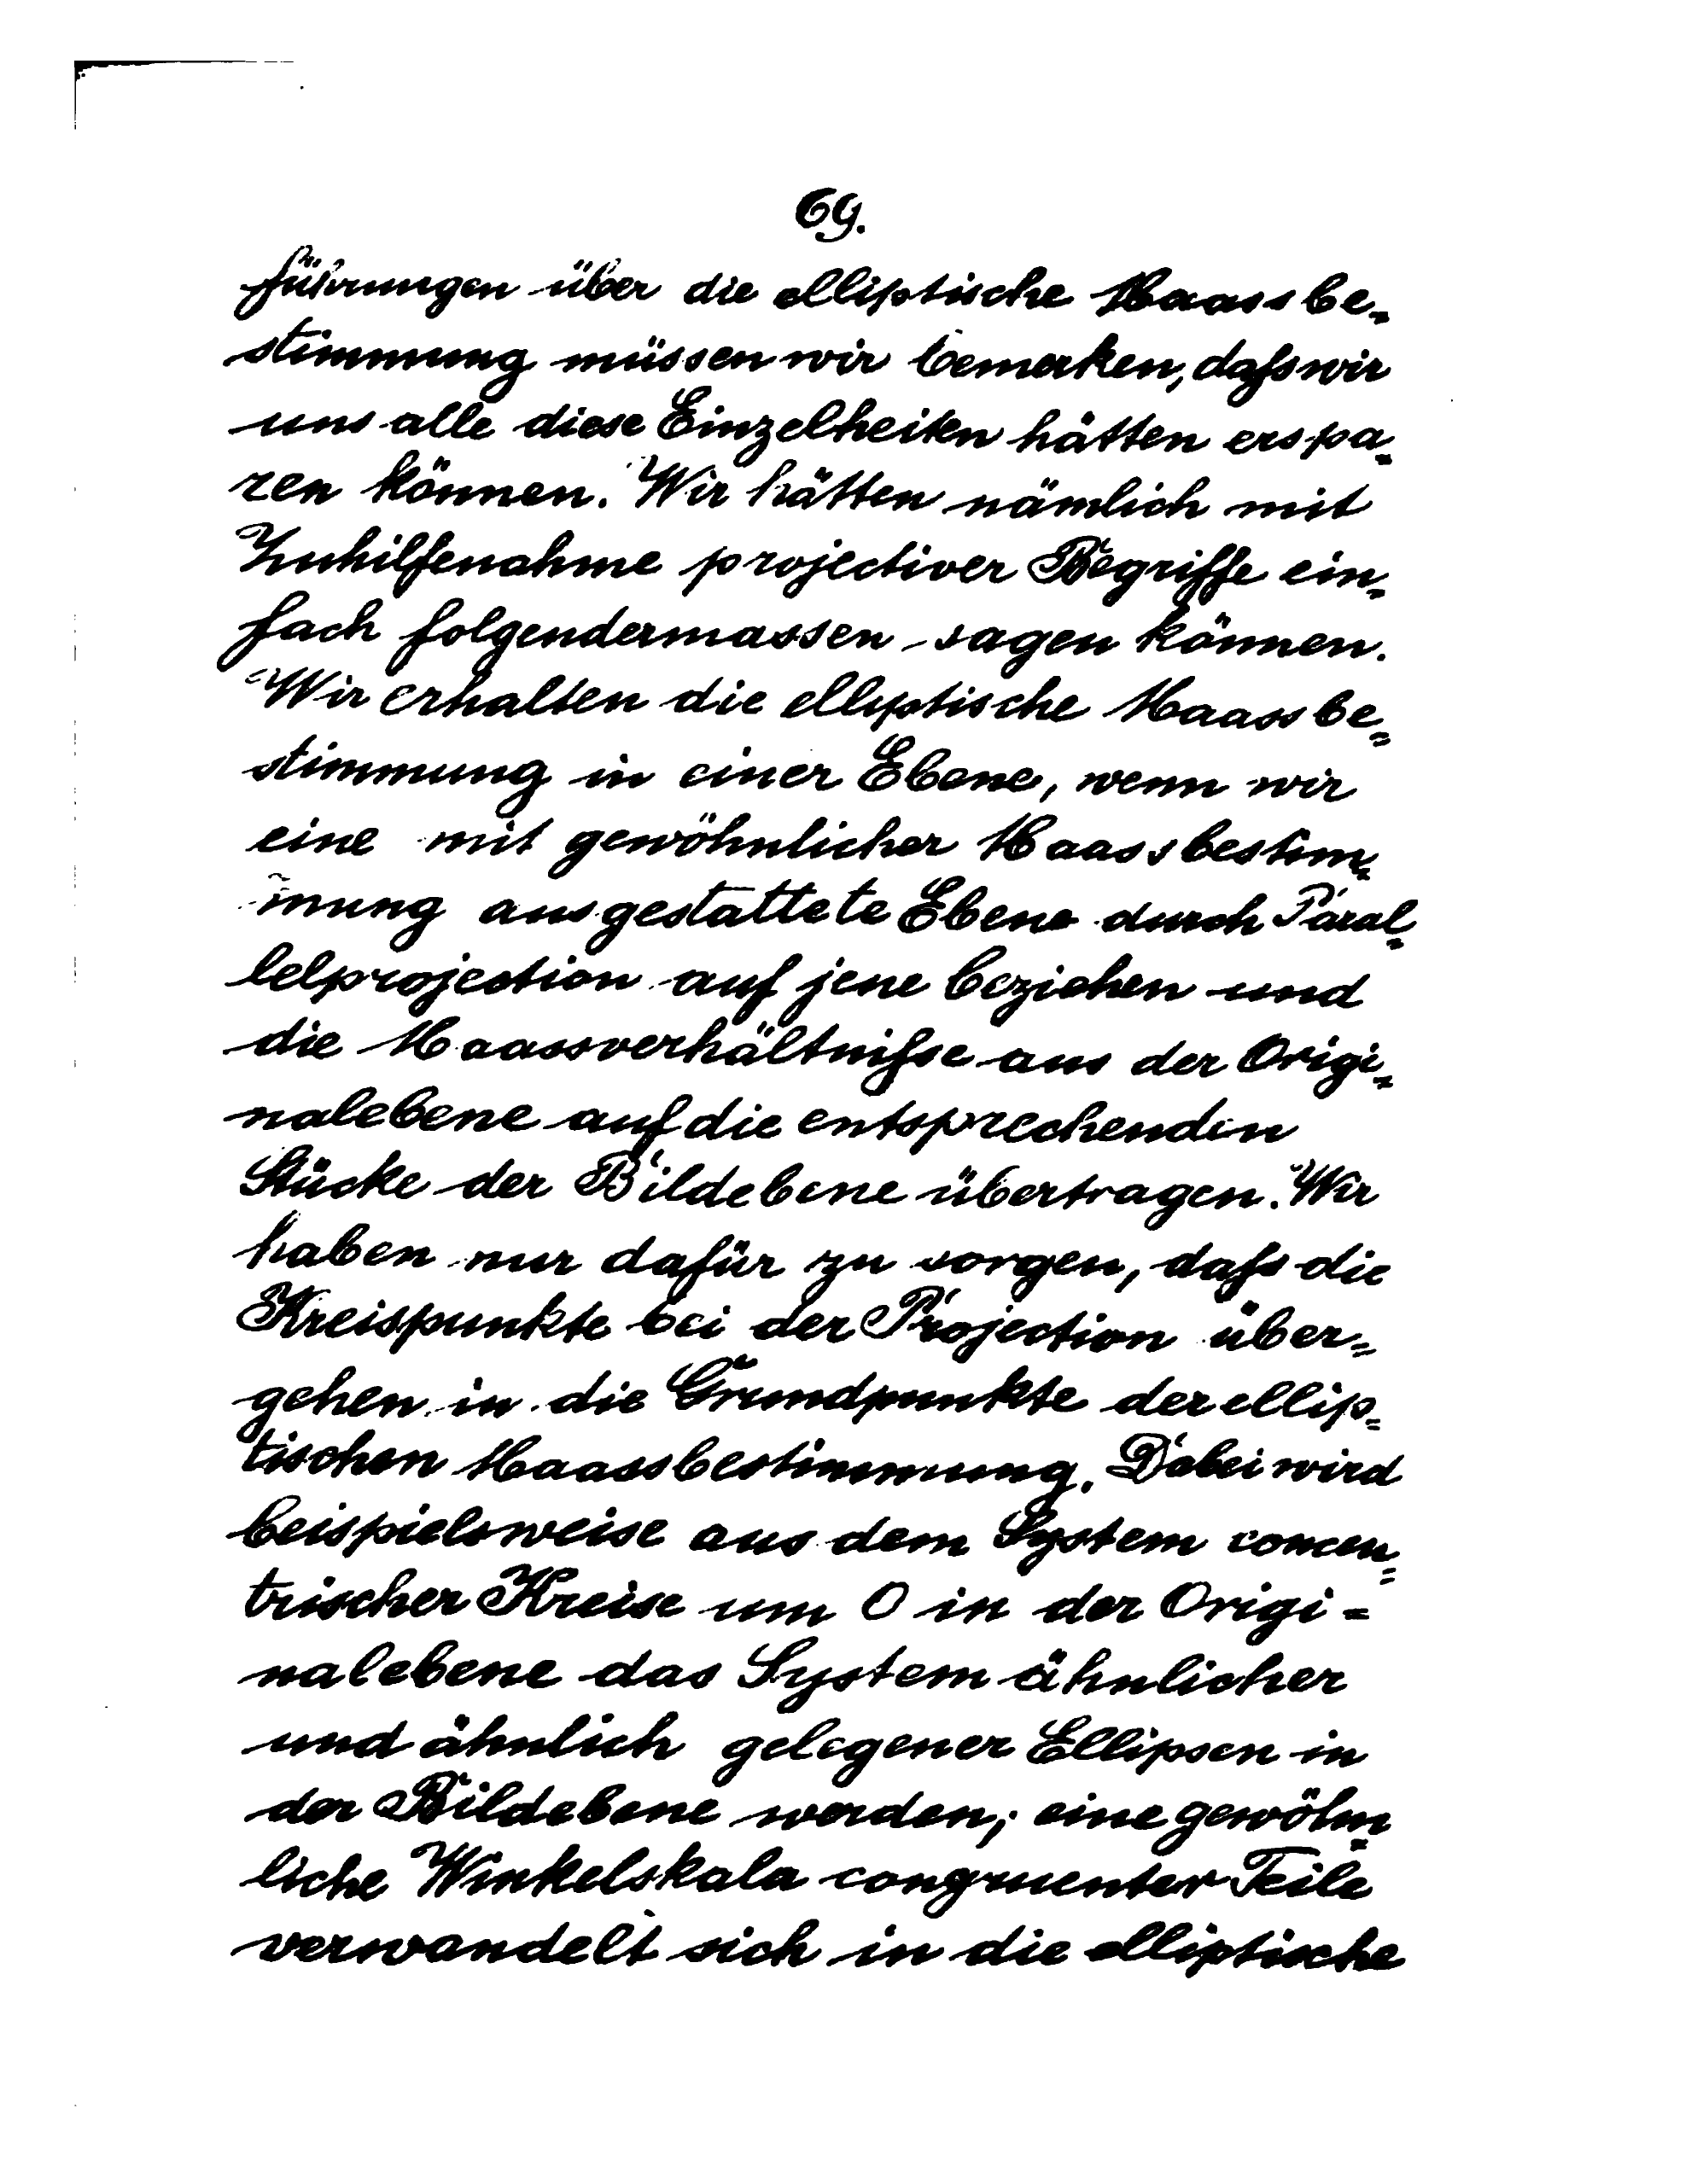 69.
führungen über die elliptische Maassbe=
stimmung müssen wir bemerken, daſs wir
uns alle diese Einzelheiten hätten erspa=
ren können. Wir hätten nämlich mit
Zuhilfenahme projectiver Begriffe ein=
fach folgendermassen sagen können.
Wir erhalten die elliptische Maassbe=
stimmung in einer Ebene, wenn wir
eine mit gewöhnlicher Maassbestim=
mung ausgestattete Ebene durch Paral=
lelprojection auf jene beziehen und
die Maassverhältniſse aus der Origi=
nalebene auf die entsprechenden
Stücke der Bildebene übertragen. Wir
haben nur dafür zu sorgen, daſs die
Kreispunkte bei der Projection über=
gehen in die Grundpunkte der ellip=
tischen Maassbestimmung. Dabei wird
beispielsweise aus dem System concen=
trischer Kreise um O in der Origi=
nalebene das System ähnlicher
und ähnlich gelegener Ellipsen in
der Bildebene werden; eine gewöhn=
liche Winkelskala congruenter Teile
verwandelt sich in die elliptische